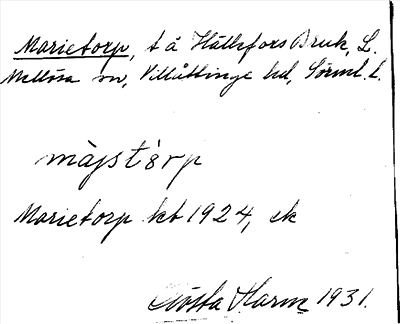 Marietorp, t å Hälleforss Bruk, L.
Mellösa sn, Villåttinge hd, Sörml. l.
màjstȯrp
Marietorp kt 1924, ek
Gösta Harm 1931.